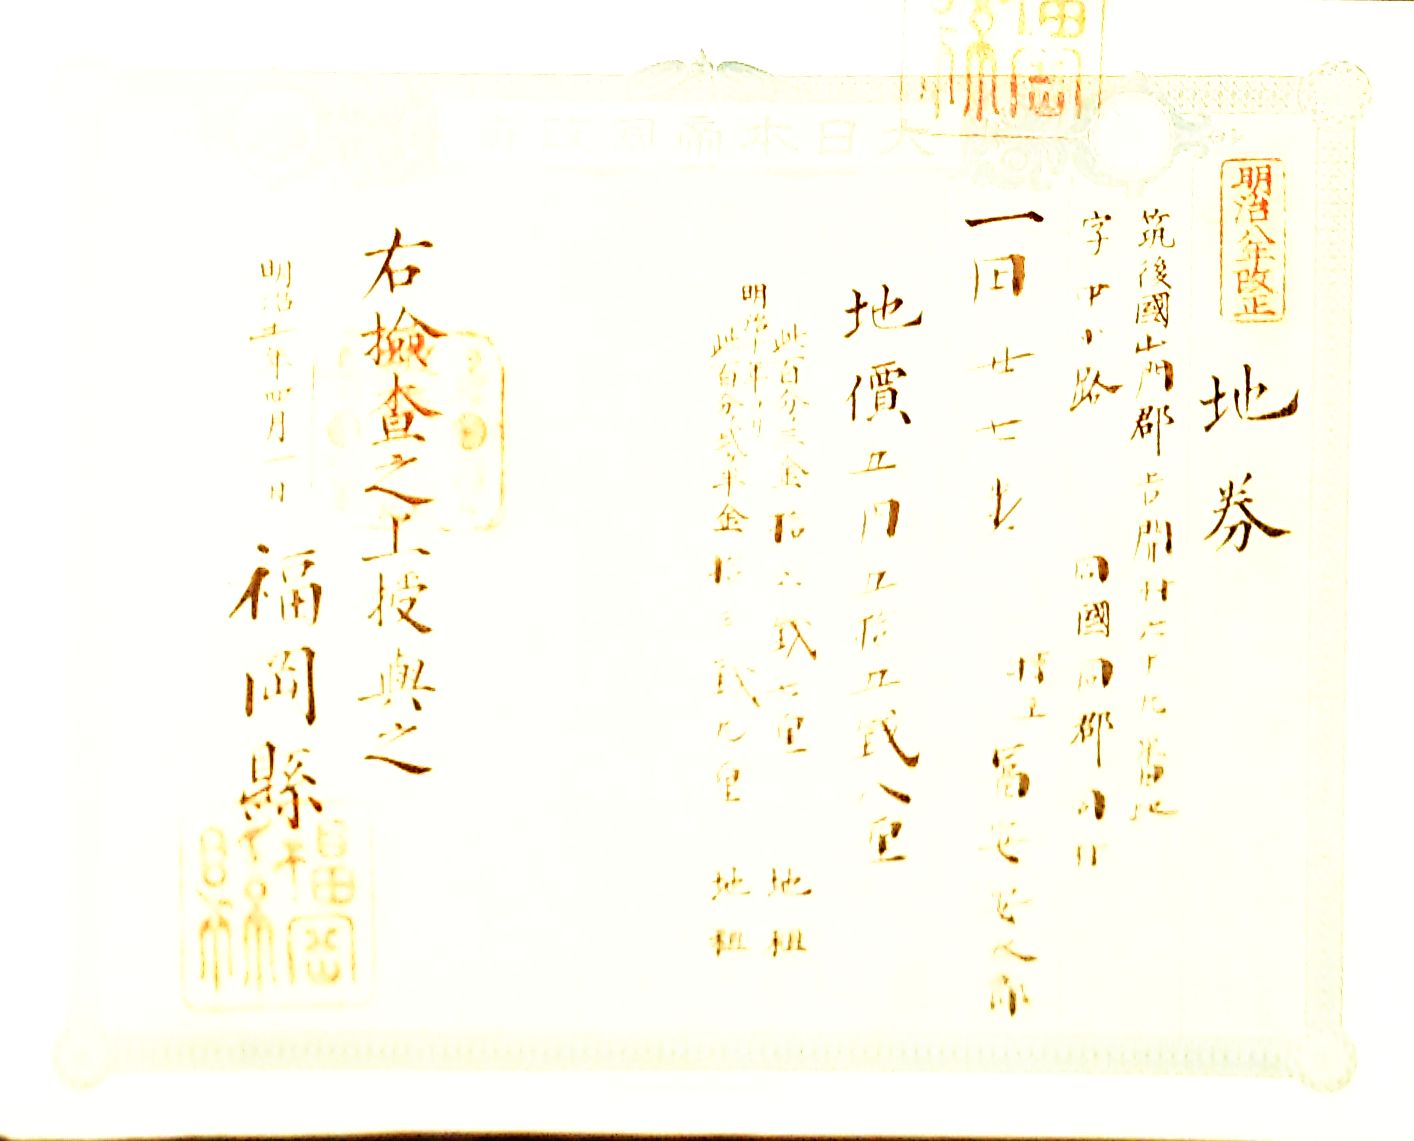 大日本帝国政府
明治八年改正
地券
筑後國山門郡吉開村
字中小路
同國同郡同村
一田廿七歩
持主 冨安
地價五円五拾五銭八厘
此百分三金拾六銭七厘 地租
明治十年ヨリ
此百分貳半金拾三銭九厘 地租
右撿查之上授與之
明治十一年四月一日
福岡縣
福岡縣